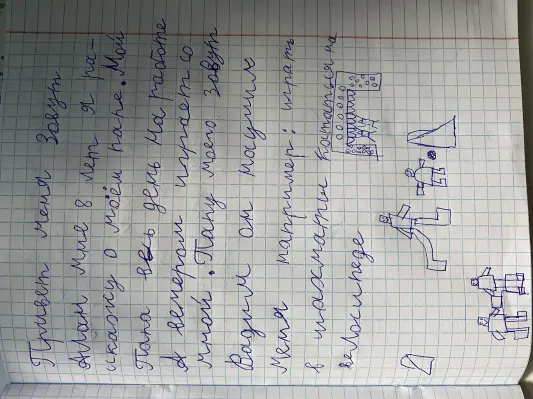 Привет меня Зовут
Адам мне 8 лет я ра-
скажу о моём папе. Мой
Папа весь день на работе
А вечером играет со
мной. Папу моего зовут
Вадим он научил
меня например: играть
в шахматы кататься на
велосипеде